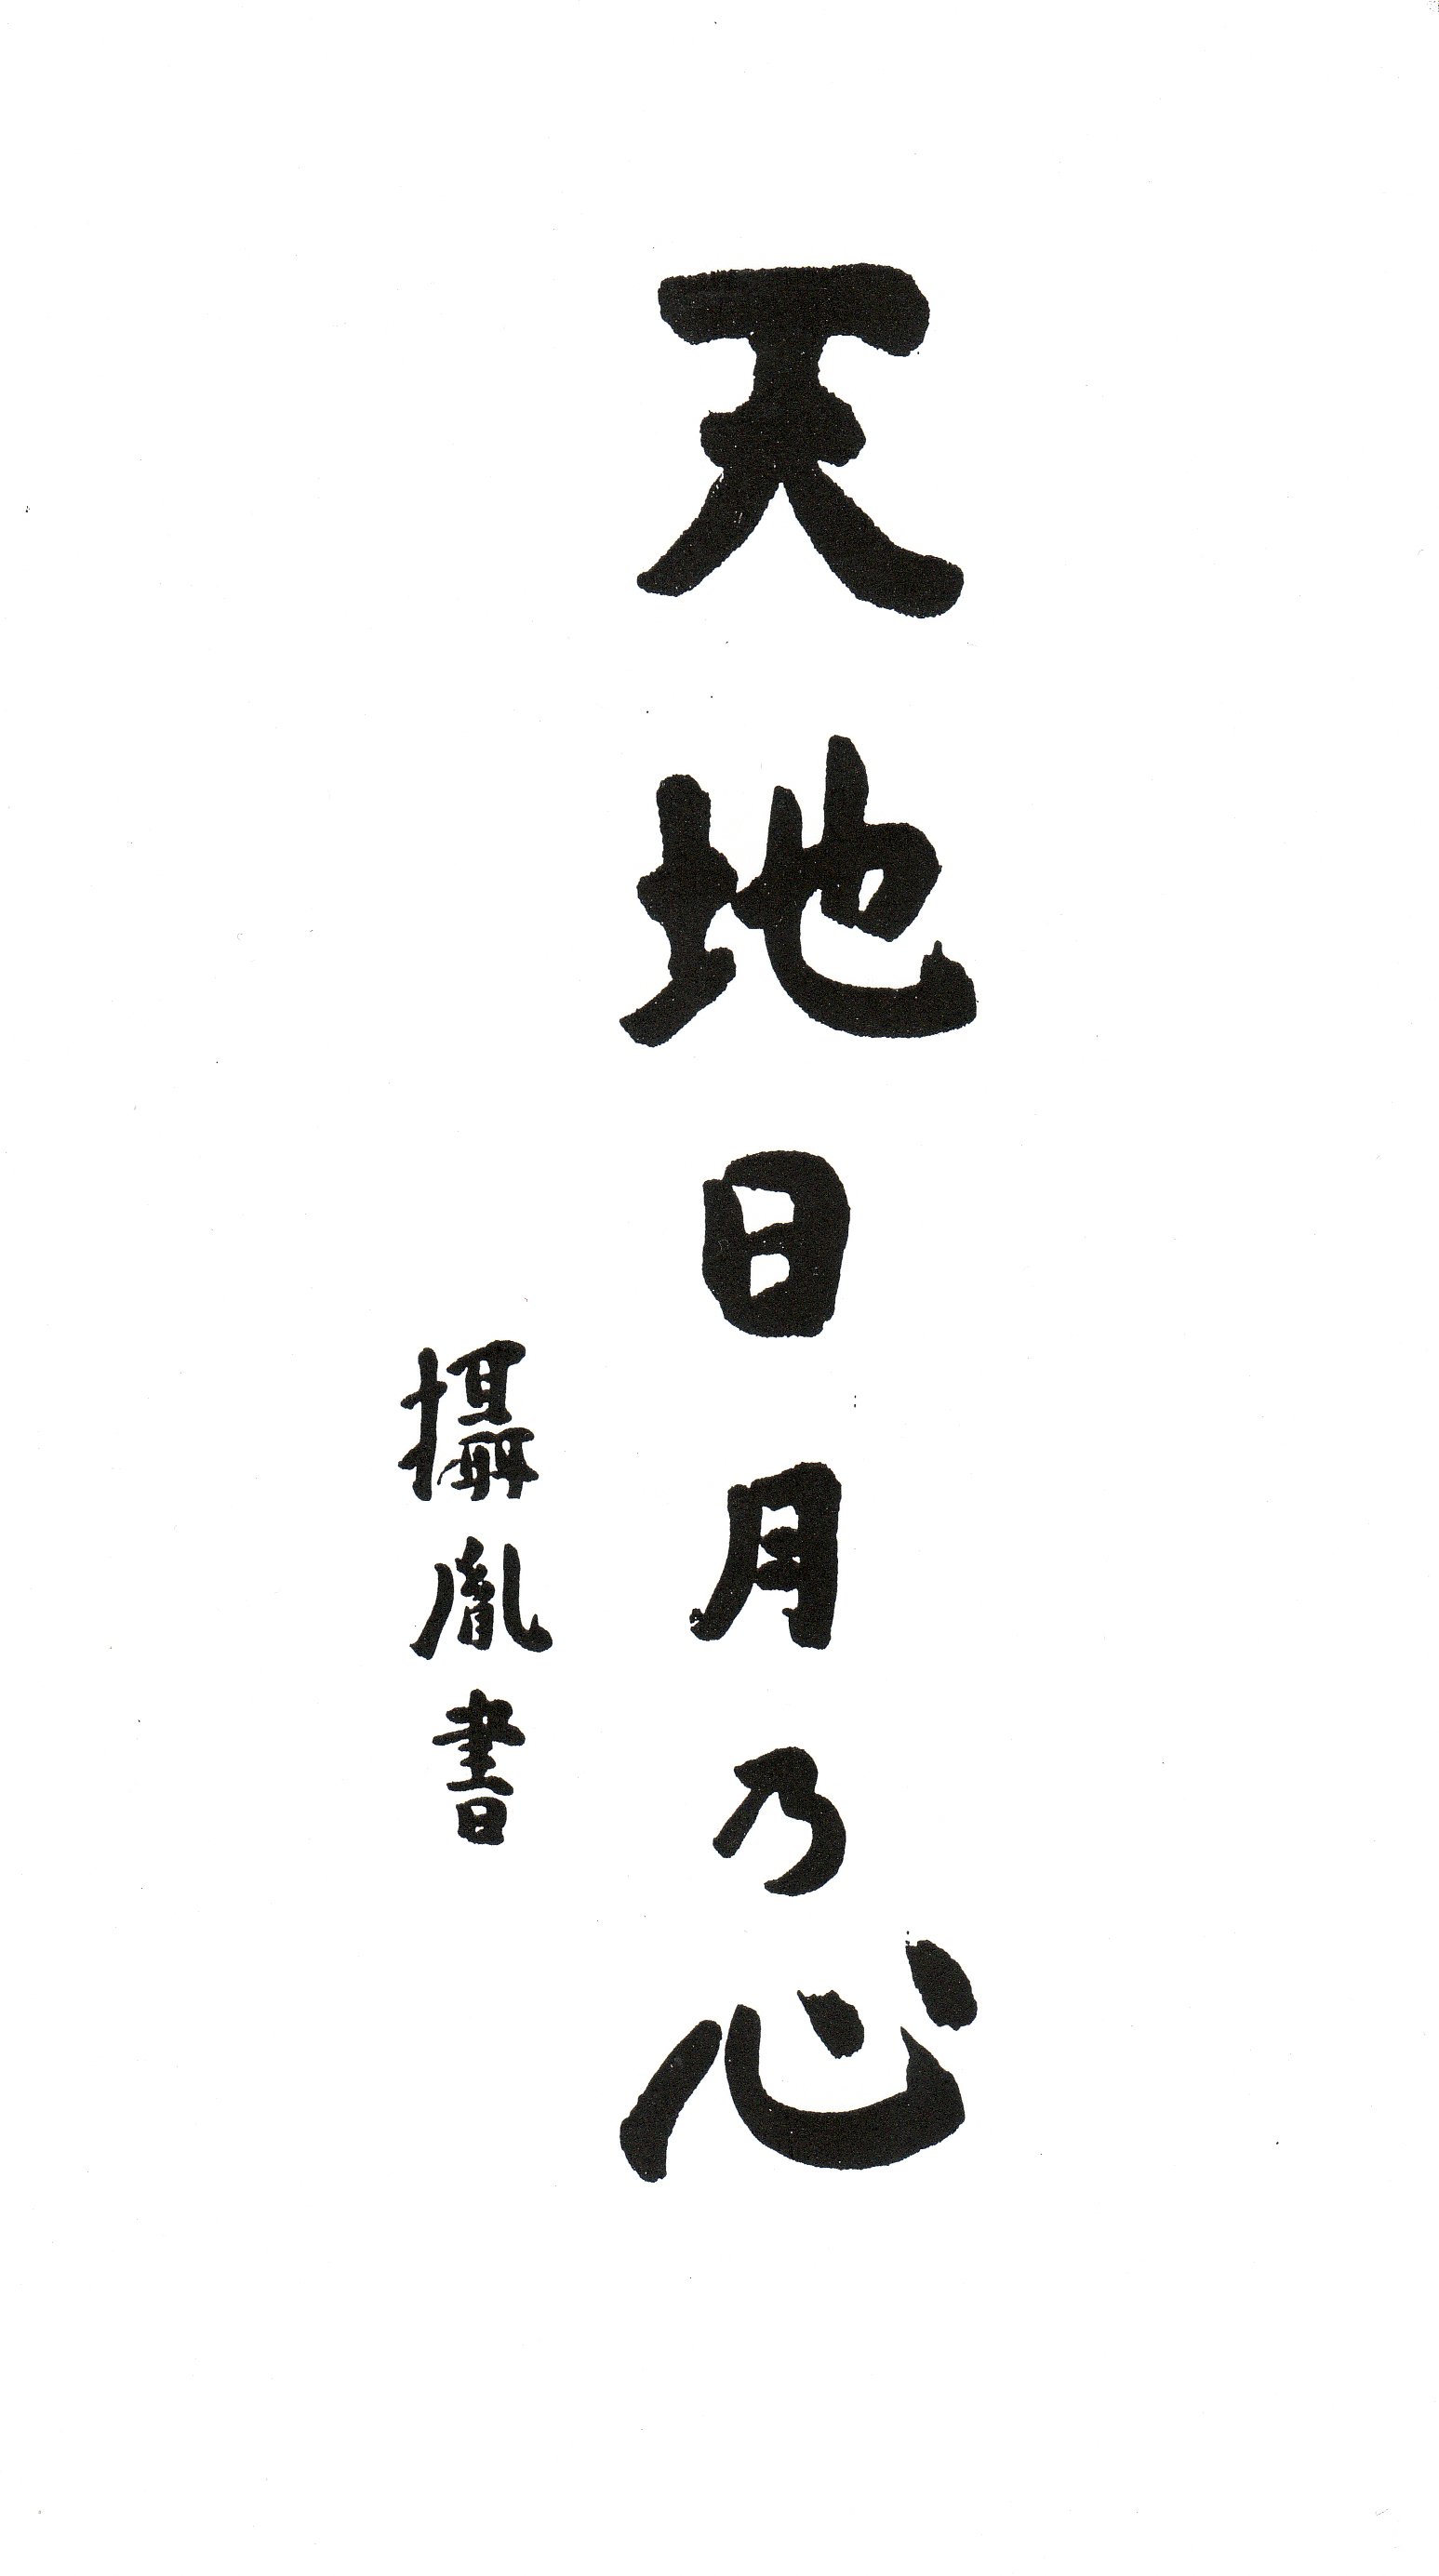 天地日月乃心
攝胤書